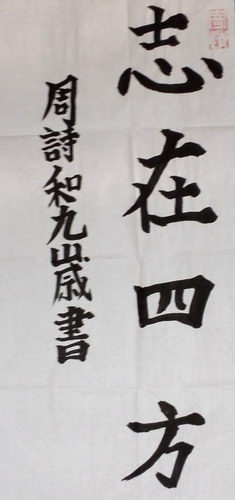 志在四方
周詩和九歲書